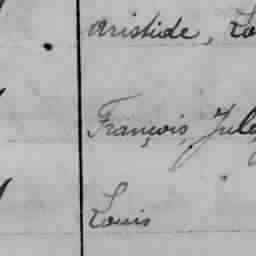 Aristide,
François, Jules
Louis